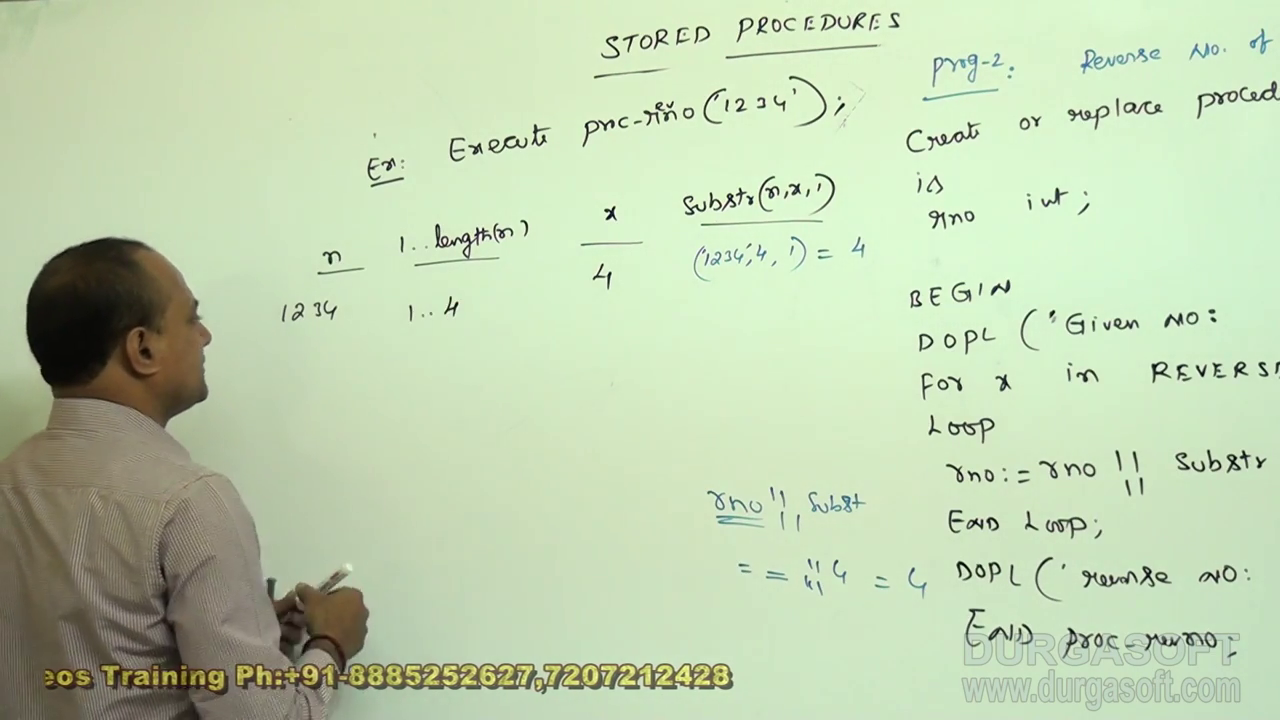 STORED PROCEDURES
Ex: Execute proc-
('1234');
n 1..length(n) x Substr(n,x,1)
1234 1..4 4 ('1234',4,1) = 4
rno || Subst
= = || 4 = 4
prog-2: Reverse No. of
Create or replace proced
is
rno int;
BEGIN
DOPL ('Given NO:
For x in REVERS
Loop
rno:= rno || Substr
END Loop;
DOPL ('reverse NO:
END proc-revno;
eos Training Ph:+91-8885252627,7207212428
DURGASOFT
www.durgasoft.com